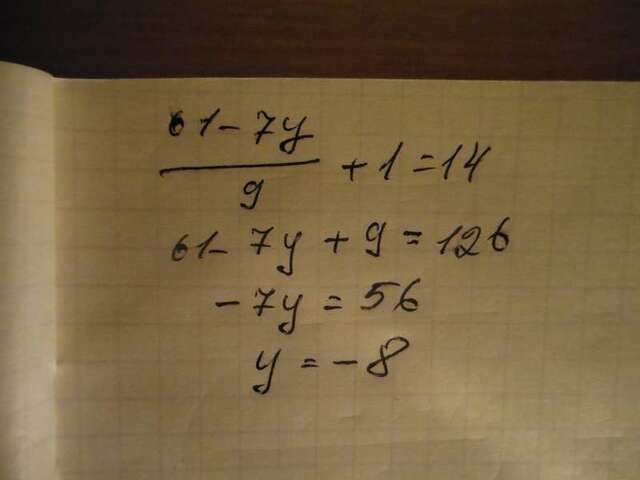 61-7y
9
+1=14
61-7y+9=126
-7y=56
y=-8